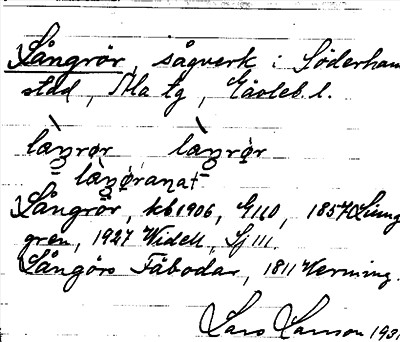 Långrör, sågverk i Söderham
stad, Ma tg, Gävleb. l.
læŋrør læŋrør
læŋøranat
Långrör, kb 1906, G110, 1857 Ljung
gren, 1927 Widell, Sj III.
Långörs Fäbodar, 1811 Werming.
Lars Larsson 1931